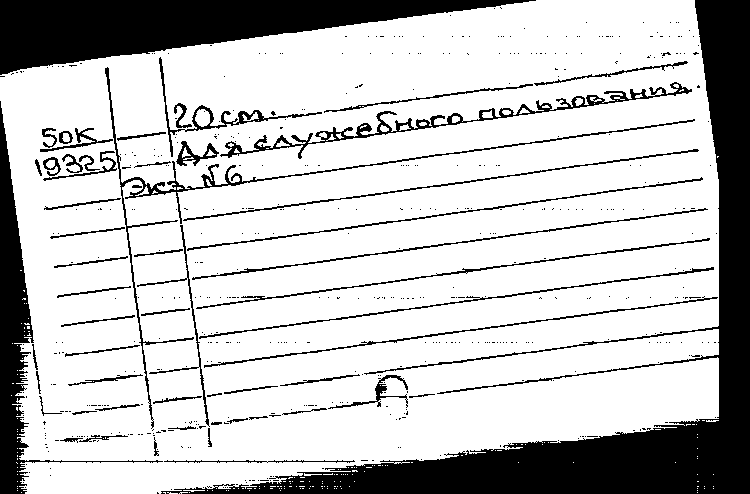 20 см.
50к
Для служебного пользования.
19325
Экз. №6.